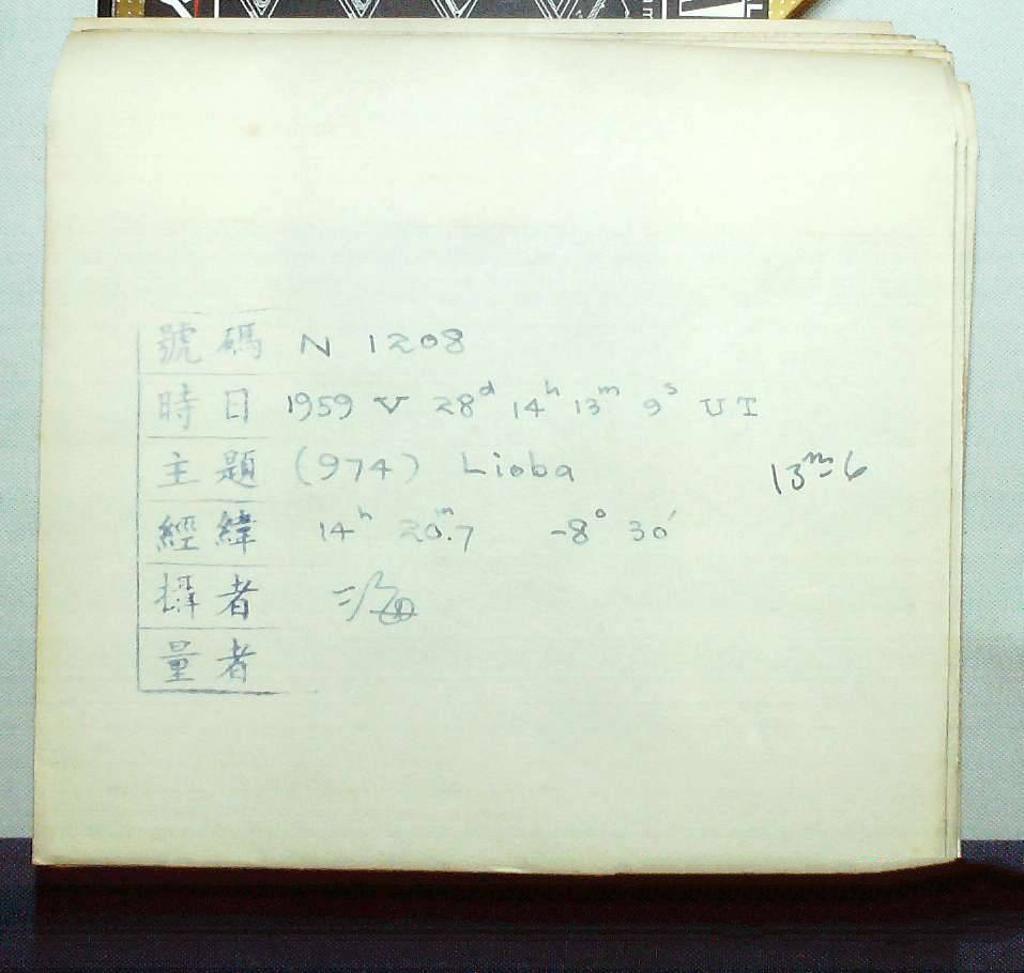 號碼 N 1208
時日 1959 V 28ᵈ 14ʰ 13ᵐ 9ˢ UT
主題 (974) Lioba 13ᵐ.6
經緯 14ʰ 20ᵐ.7 -8° 30′
攝者
量者